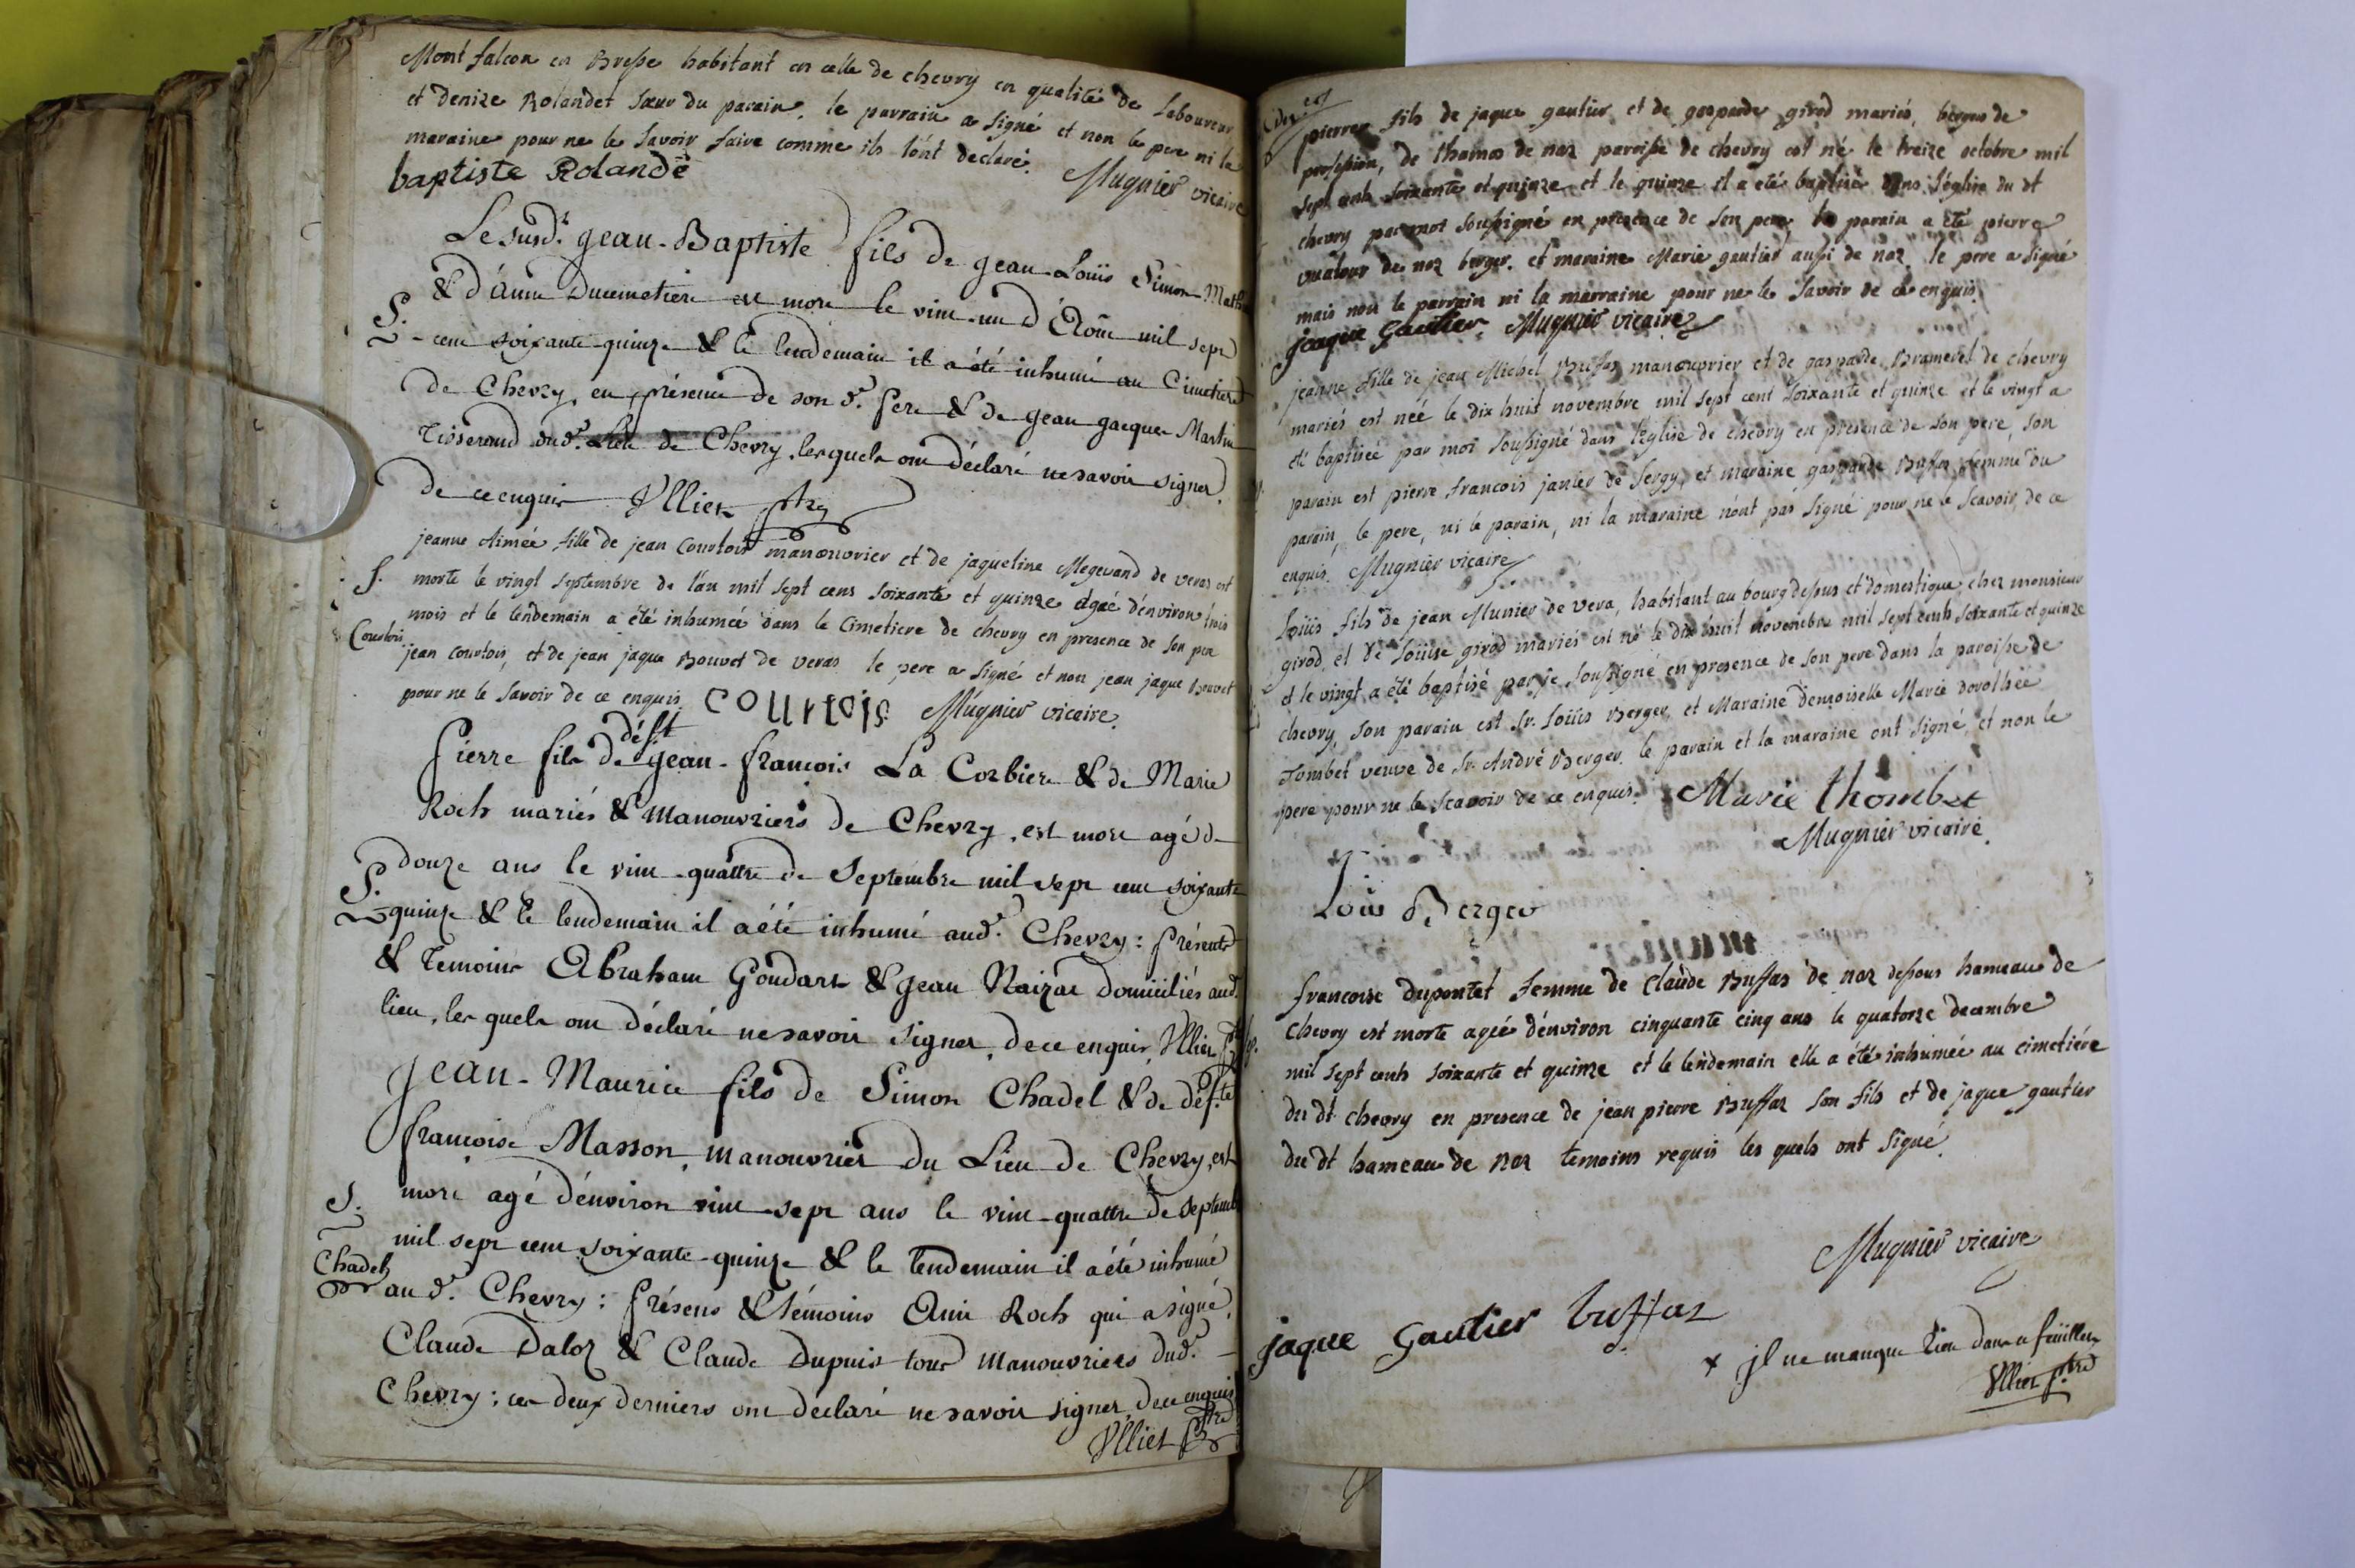 Mont falcon en Bresse habitant en celle de chevry en qualité de Laboureur
et denize Rolandet sœur du parain, le parrain a signé et non le pere ni la
maraine pour ne le Savoir faire comme ils l'ont declaré. Mugnier vicaire
baptiste Rolandé
Le susd.t Jean-Baptiste fils de Jean-Loüis Simon-Math
& d'Anne Ducimetiere est mort le vint-un d'Aoûst mil sept
S. cent soixante-quinze & le lendemain il a été inhumé au Cimetiere
de Chevry, en présence de son d.t Pere & de Jean Jacques Martin
Tisserand dud.t Lieu de Chevry, lesquels ont déclaré ne savoir signer,
de ce enquis Ulliet ptre
jeanne Aimée fille de jean Courtois manœuvrier et de jaqueline Megevand de veraz est
S. morte le vingt septembre de l'an mil sept cens soixante et quinze agée d'environ trois
mois et le lendemain a été inhumée dans le Cimetiere de chevry en presence de son pere
Courtois
jean courtois, et de jean jaque Bouvet de veras le pere a signé et non jean jaque Bouvet
pour ne le Savoir de ce enquis. courtois Mugnier vicaire.
Pierre fils de déf.t Jean-François La Corbiere & de Marie
Roch mariés & manouvriers de Chevry, est mort agé de
douze ans le vint-quattre de Septembre mil sept cent soixante
S. quinze & le lendemain il a été inhumé aud.t Chevry: présents
& Temoins Abraham Goudart & Jean Naizat domiciliés aud.t
lieu, lesquels ont déclaré ne savoir signer, de ce enquis, Ulliet ptre
Jean-Maurice fils de Simon Chadel & de déf.te
françoise Masson, manouvrier du Lieu de Chevry, est
mort agé d'environ vint-sept ans le vint-quattre de Septemb
S. mil sept cent soixante-quinze & le lendemain il a été inhumé
Chadel
au d.t Chevry: présens & témoins Ami Roch qui a signé,
Claude Daloz & Claude Dupuis tous manouvriers dud.t
Chevry; ces deux derniers ont déclaré ne savoir signer, de ce enquis
Ulliet ptre
pierre fils de jaque gautier et de gasparde girod mariés, berger de
profession, de thamas de naz paroisse de chevry est né le treize octobre mil
sept cents soixante et quinze et le quinze il a été baptisé dans l'église du dt
chevry par moi soussigné en presence de son pere le parain a été pierre
vuatour de naz berger. et maraine Marie gautier aussi de naz. le pere a signé
mais non le parrain ni la marraine pour ne le Savoir de ce enquis.
jaque Gautier Mugnier vicaire
jeanne fille de jean Michel Buffaz manœuvrier et de gasparde Bramerel de chevry
mariés est née le dix huit novembre mil sept cent soixante et quinze et le vingt a
été baptisée par moi soussigné dans l'église de chevry en presence de son pere, son
parain est pierre francois janier de Sergy, et maraine gasparde Buffaz femme du
parain, le pere, ni le parain, ni la maraine n'ont pas signé pour ne le Scavoir de ce
enquis. Mugnier vicaire
Loüis fils de jean Munier de vera, habitant au bourg dessus et domestique chez monsieur
girod, et de Loüise girod mariés est né le dix huit novembre mil sept cents soixante et quinze
et le vingt a été baptisé par je soussigné en presence de son pere dans la paroisse de
chevry, son parain est Sr. Loüis Berger, et Maraine demoiselle Marie dorothée
Tombet veuve de Sr. André Berger. le parain et la maraine ont signé, et non le
pere pour ne le Scavoir de ce enquis. Marie thombet
Mugnier vicaire.
Louis Berger
francoise dupontet femme de claude Buffaz de naz dessous hameau de
chevry est morte agée d'environ cinquante cinq ans le quatorze decembre
mil sept cents soixante et quinze et le lendemain elle a été inhumée au cimetiére
du dt chevry en presence de jean pierre Buffaz son fils et de jaque gautier
du dt hameau de naz temoins requis les quels ont signé.
Mugnier vicaire
jaque Gautier buffaz
x Jl ne manque Rien dans ce feüillet
Ulliet ptre